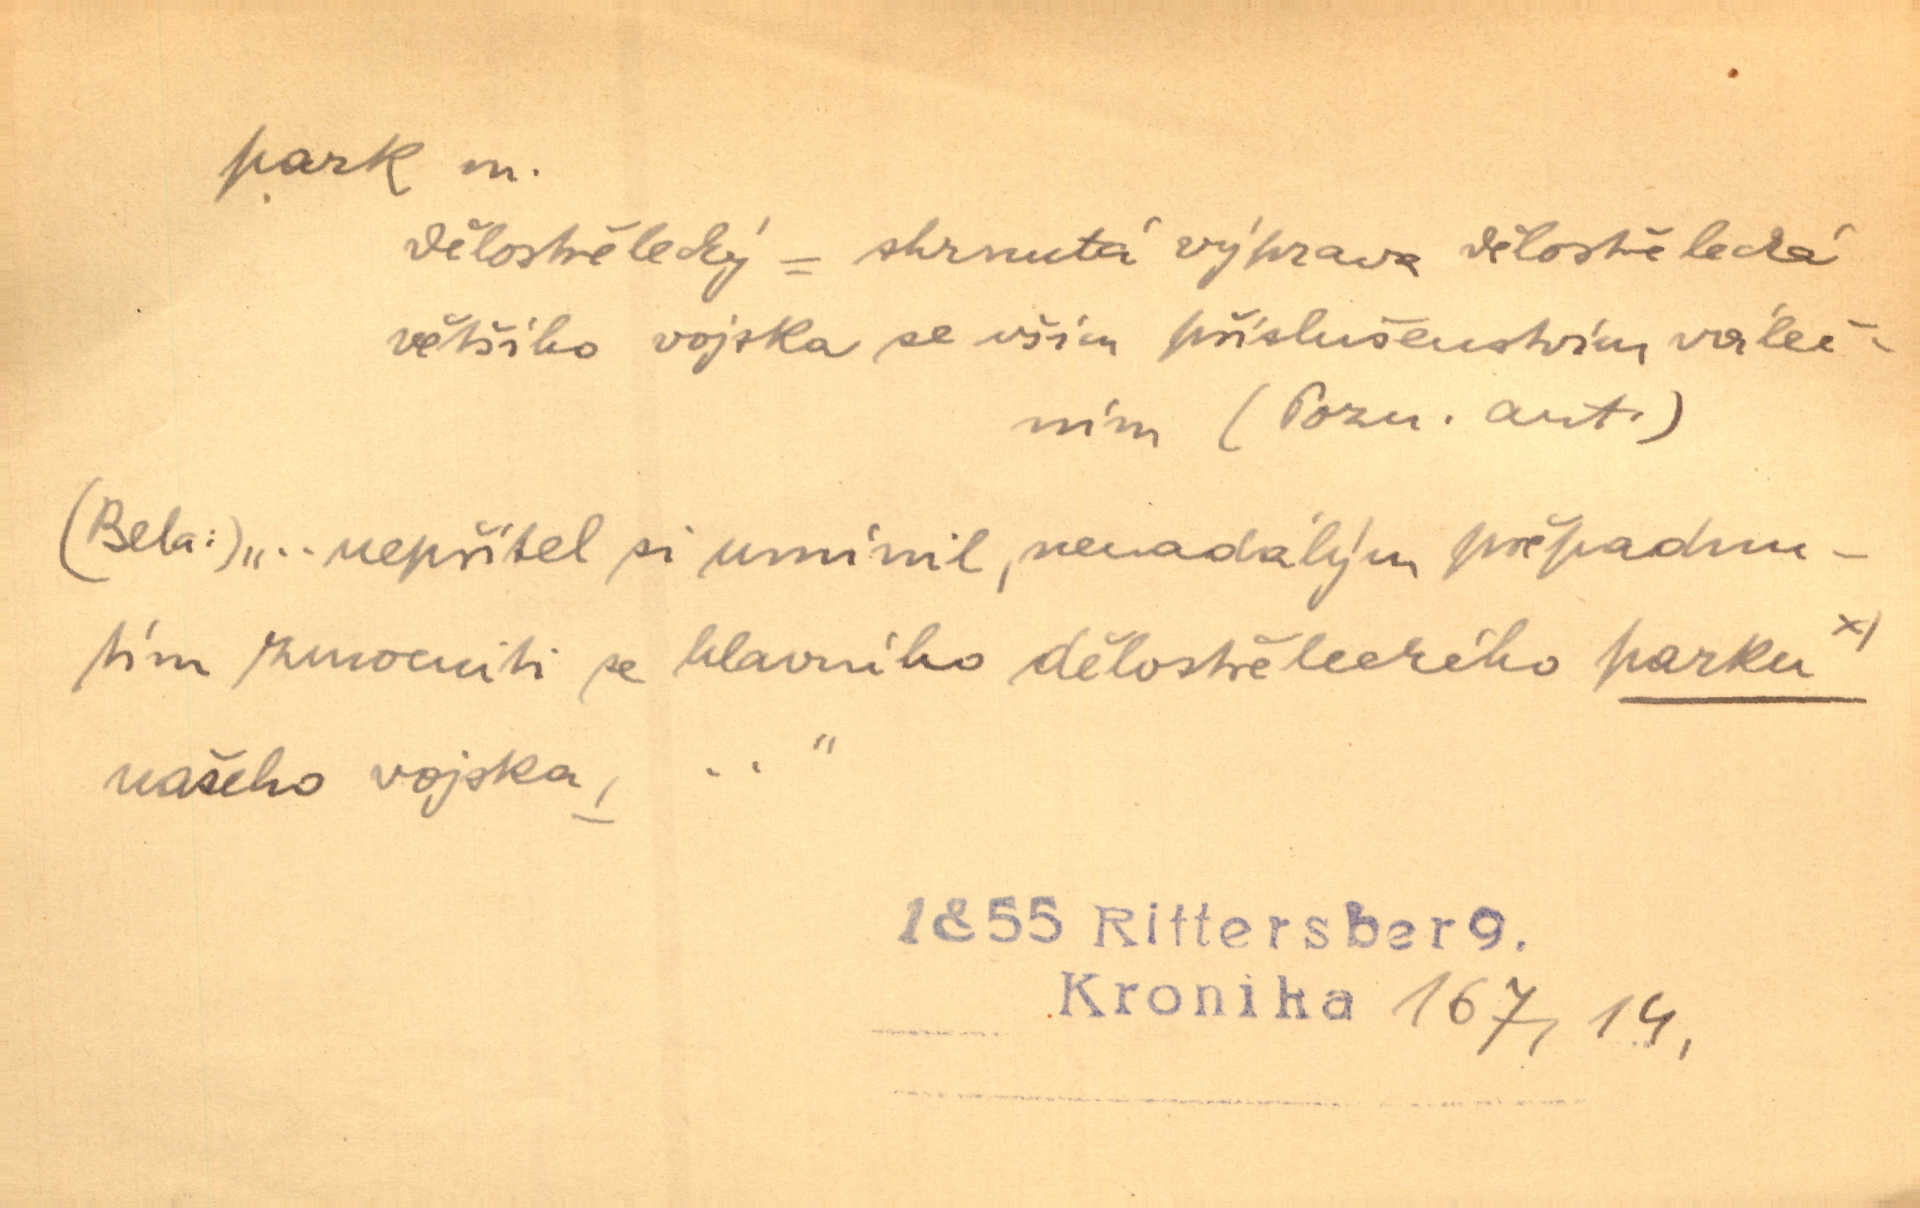 park m.
dělostřelecký = shrnutá výprava dělostřelecká
většího vojska se vším příslušenstvím váleč-
ním (Pozn. aut.)
(Bela:) „.. nepřítel si umínil, nenadálým přepadnu-
tím zmocniti se hlavního dělostřeleckého parku x)
našeho vojska, .. "
1855 Rittersberg.
Kronika 167, 14,